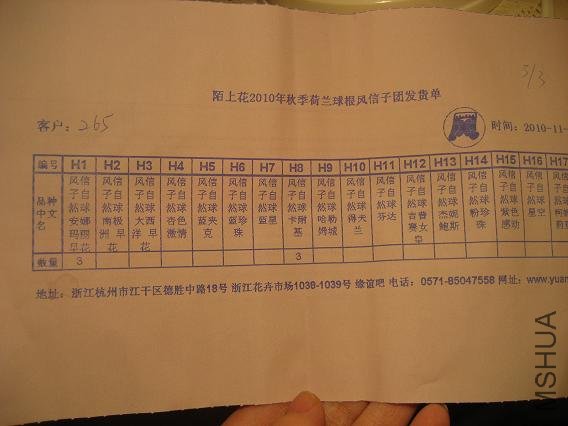 3/3
陌上花2010年秋季荷兰球根风信子团发货单
客户：265
时间：2010-11-
编号 H1 H2 H3 H4 H5 H6 H7 H8 H9 H10 H11 H12 H13 H14 H15 H16 H17
品种中文名
风信子自然球安娜玛丽早花
风信子自然球南极洲 早花
风信子自然球大西洋 早花
风信子自然球杏色激情
风信子自然球蓝夹克
风信子自然球蓝珍珠
风信子自然球蓝星
风信子自然球卡耐基
风信子自然球哈勒姆城
风信子自然球得夫兰
风信子自然球芬达
风信子自然球吉普赛女皇
风信子自然球杰妮鲍斯
风信子自然球粉珍珠
风信子自然球紫色感动
风信子自然球星空
数量 3 3
地址：浙江杭州市江干区德胜中路18号 浙江花卉市场1038-1039号 缘谊吧 电话：0571-85047558 网址：www.yuan
MSHUA